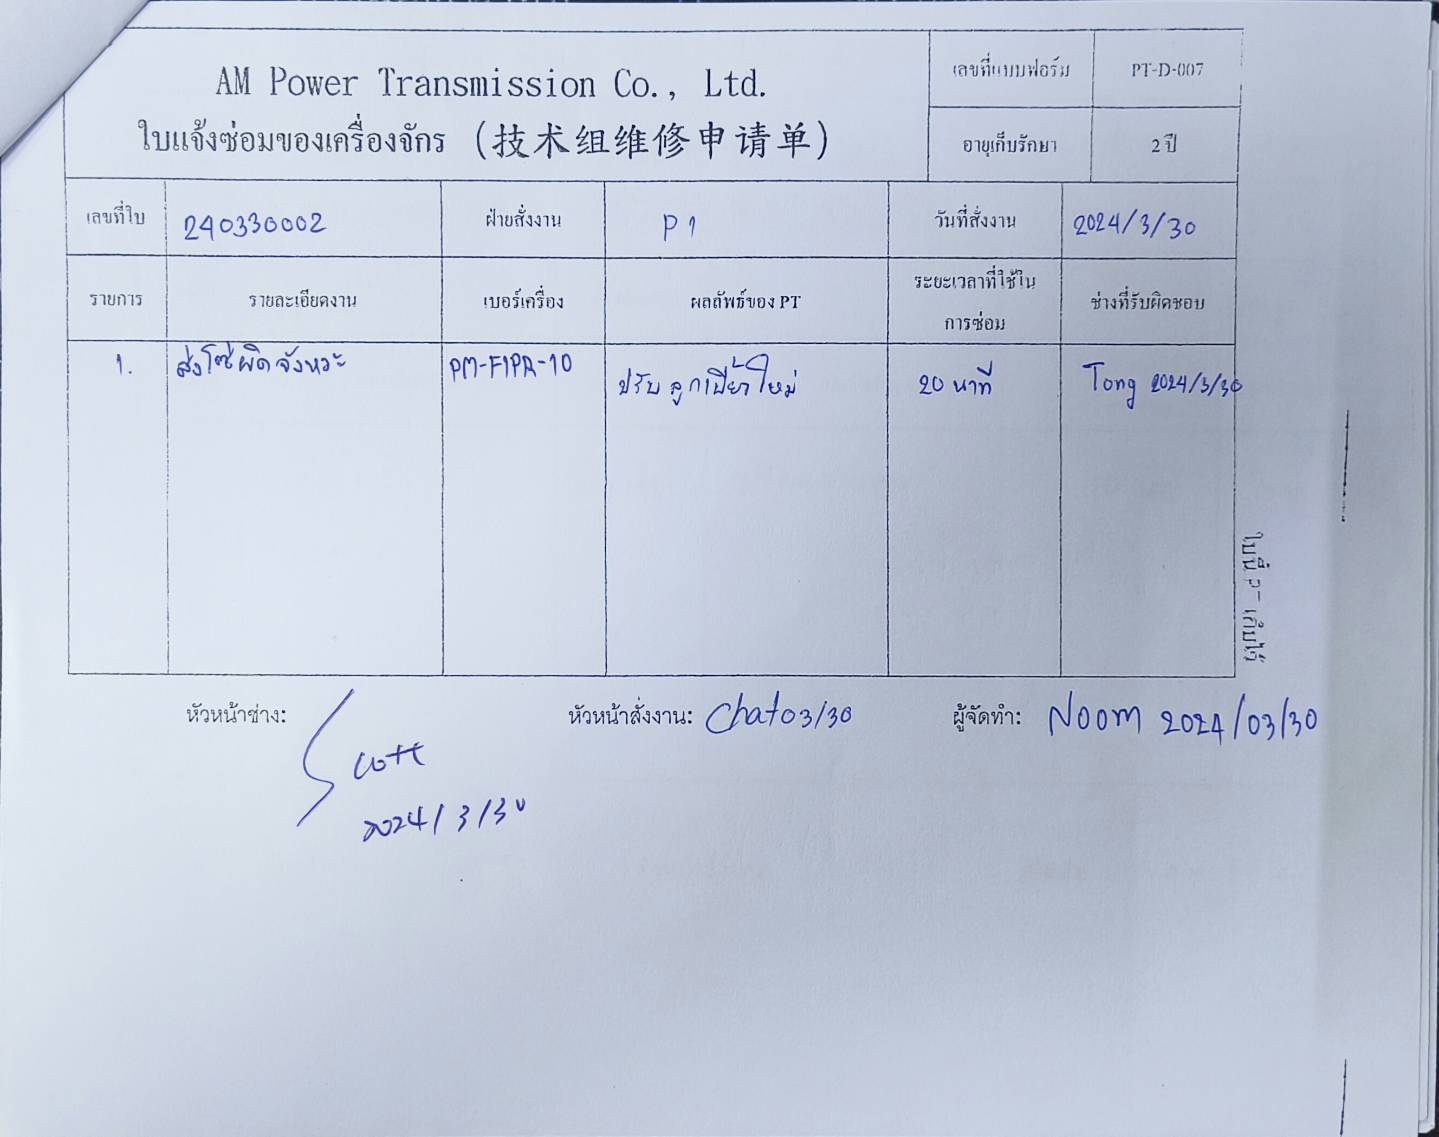 AM Power Transmission Co., Ltd.
ใบแจ้งซ่อมของเครื่องจักร (技术组维修申请单)
เลขที่แบบฟอร์ม PT-D-007
อายุเก็บรักษา 2 ปี
เลขที่ใบ 240330002 ฝ่ายสั่งงาน P1 วันที่สั่งงาน 2024/3/30
รายการ รายละเอียดงาน เบอร์เครื่อง ผลลัพธ์ของ PT ระยะเวลาที่ใช้ในการซ่อม ช่างที่รับผิดชอบ
1. ส่งโซ่ผิดจังหวะ PM-F1PA-10 ปรับลูกเบี้ยวใหม่ 20 นาที Tong 2024/3/30
ใบนี้ PT เก็บไว้
หัวหน้าช่าง: หัวหน้าสั่งงาน: Chat 03/30 ผู้จัดทำ: Noom 2024/03/30
Scott
2024/3/30